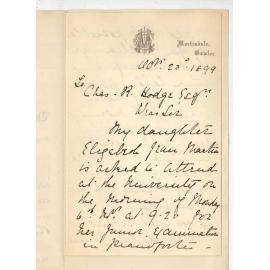 Martindale,
Gawler.
Octr 23rd 1899
To
Chas. R. Hodge Esqre
Dear Sir
My daughter
Elizabeth Jean Martin
is asked to attend
at the University on
the morning of Monday
6th Nov. at 9.20 for
her Junior Examination
in Pianoforte